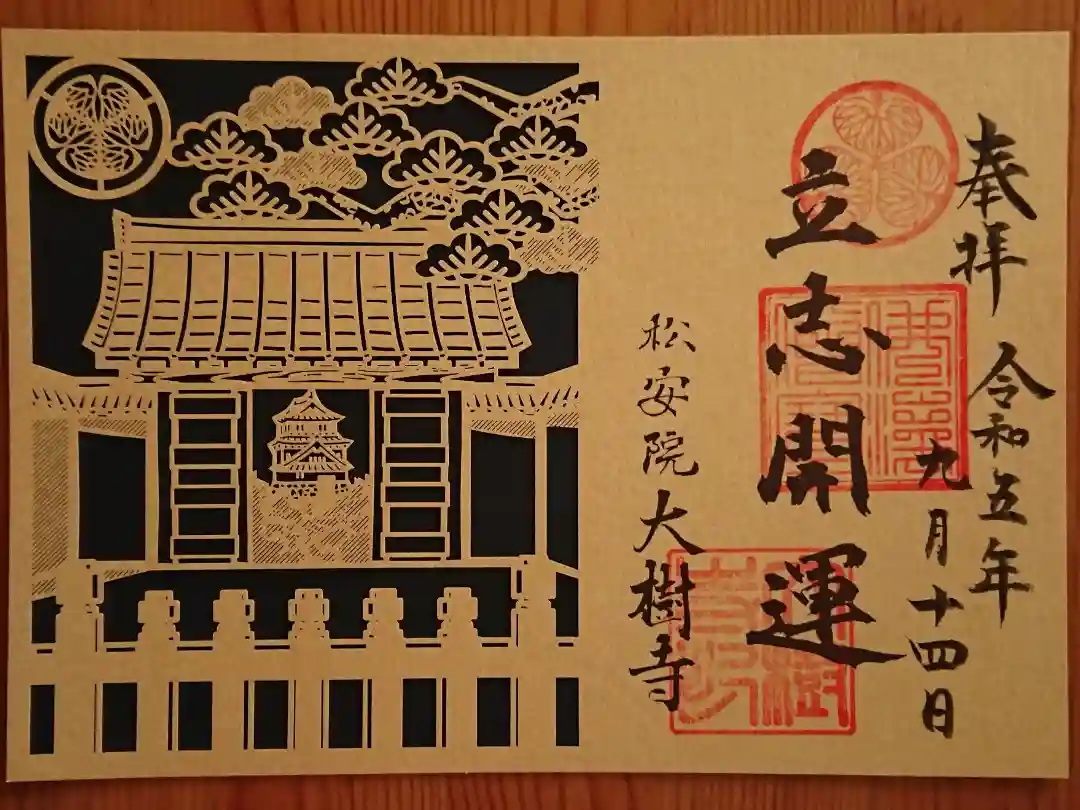 奉拝 令和五年
九月十四日
立志開運
松安院 大樹寺